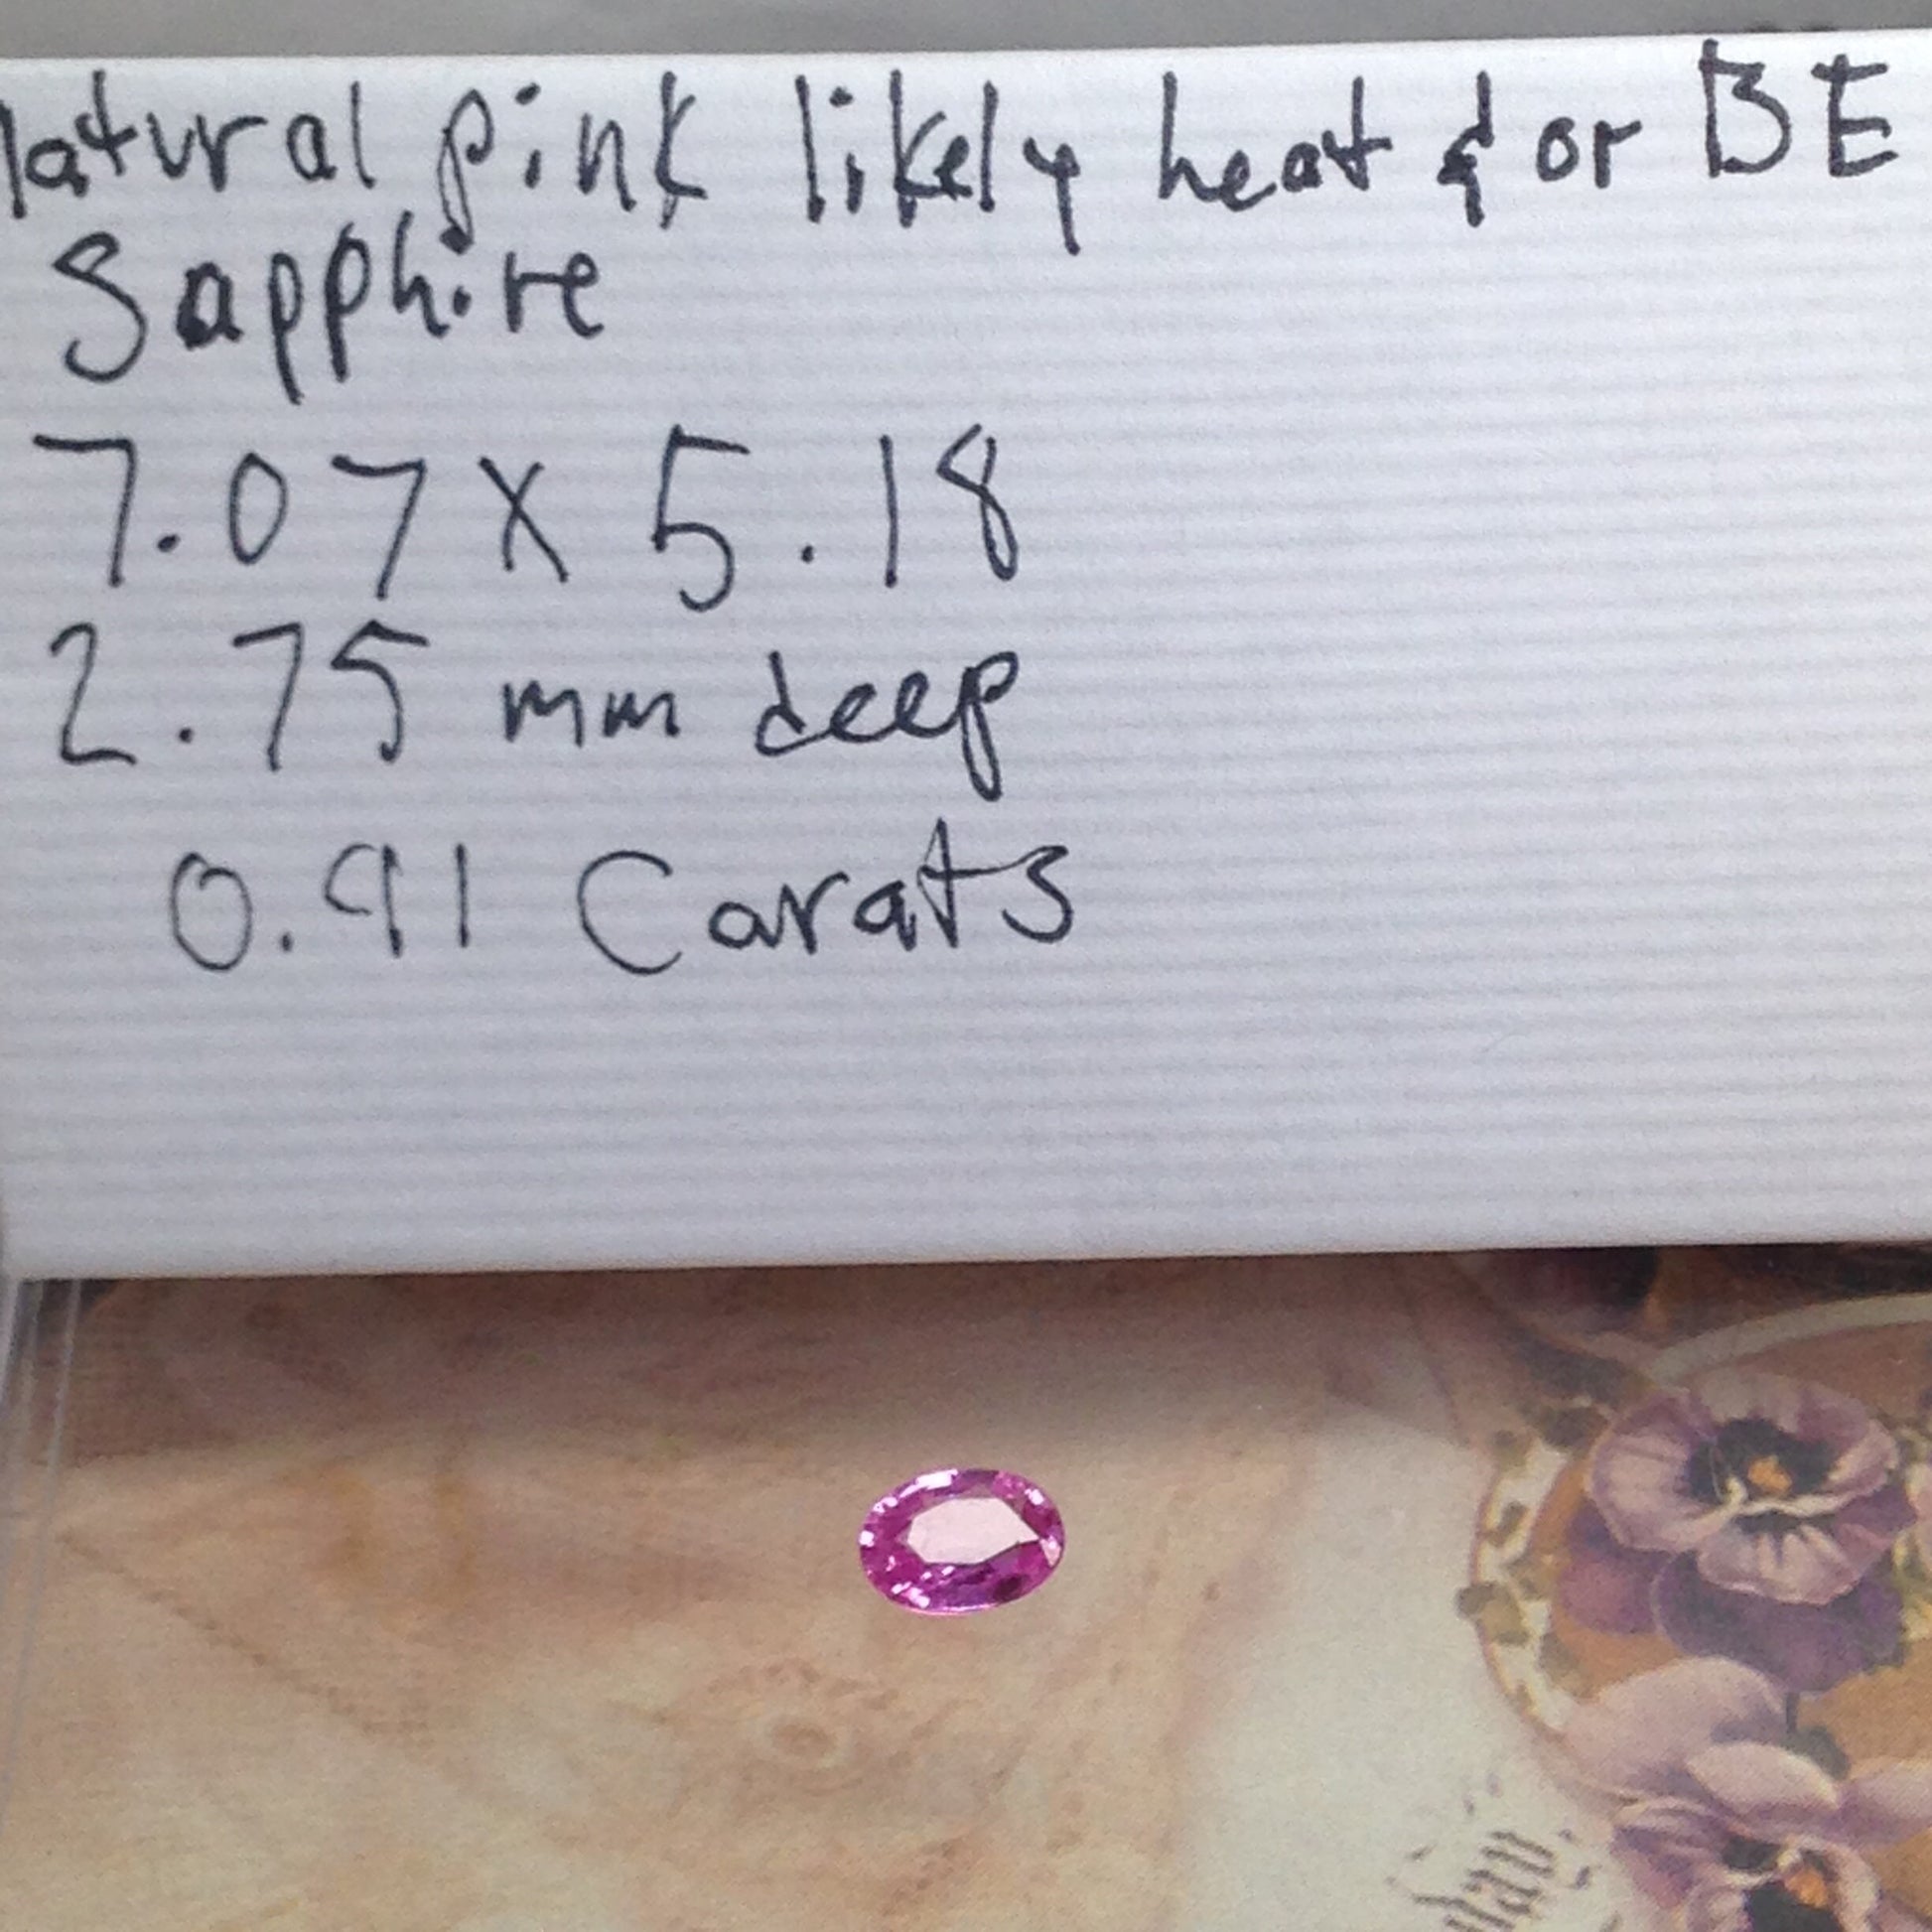 Natural pink likely heat & or BE
Sapphire
7.07 x 5.18
2.75 mm deep
0.91 Carats